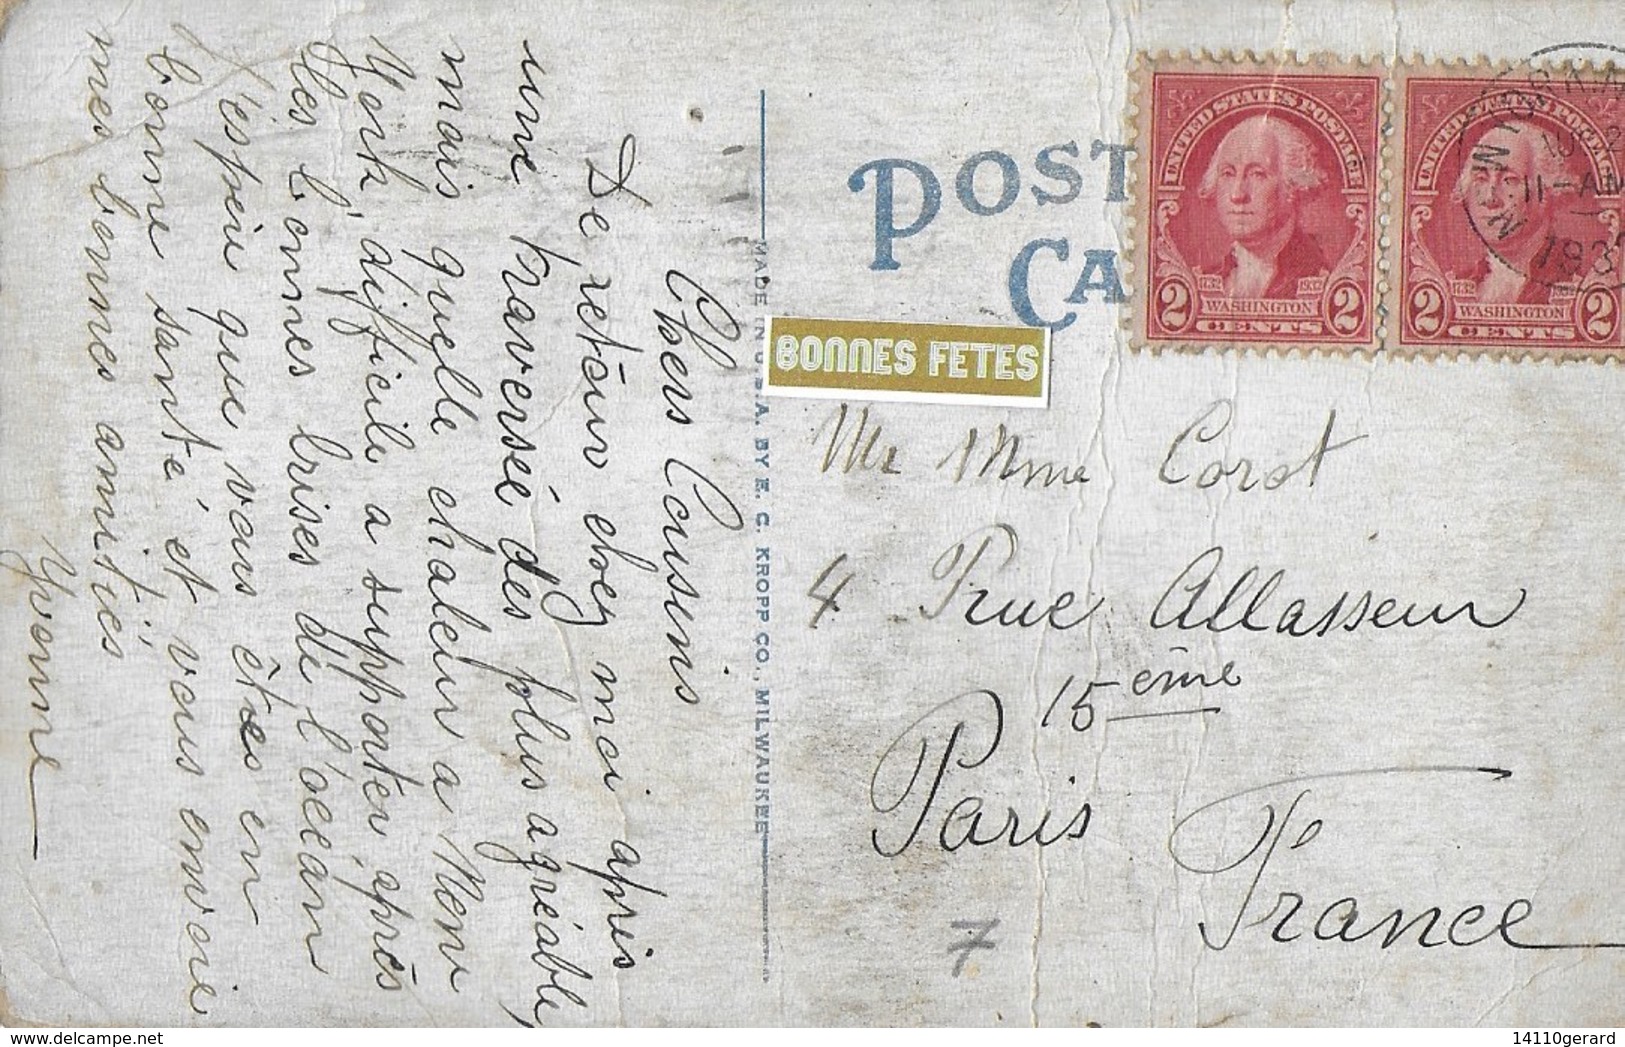 Chers Cousins
De retour chez moi après
une traversée des plus agréable,
mais quelle chaleur a New
York, difficile a supporter après
les bonnes brises de l'océan
J'espère que vous êtes en
bonne santé et vous envoie
mes bonnes amitiés
Yvonne
MADE IN U.S.A. BY E. C. KROPP CO., MILWAUKEE
POST
CA
BONNES FETES
UNITED STATES POSTAGE
1732 1932
2 WASHINGTON 2
CENTS
UNITED STATES POSTAGE
1732
2 WASHINGTON 2
CENTS
11-AM
Mr Mme Corot
4 Rue Allasseur
15ème
Paris
France
7
14110gerard